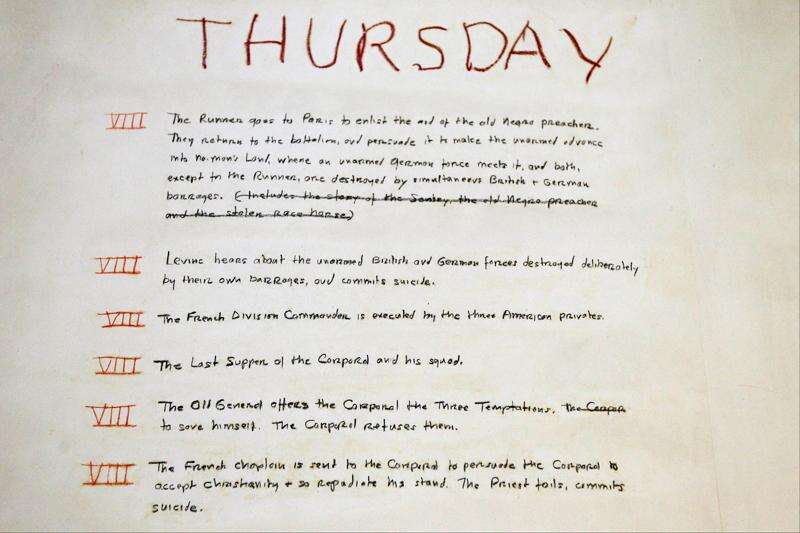 THURSDAY
VIII The Runner goes to Paris to enlist the aid of the old Negro preacher.
They return to the battalion, and persuade it to make the unarmed advance
into no-man's land, where an unarmed German force meets it, and both,
except to the Runner, are destroyed by simultaneous British + German
barrages. (Includes the story of the Sentry, the old Negro preacher
and the stolen race horse)
VIII Levine hears about the unarmed British and German forces destroyed deliberately
by their own barrages, and commits suicide.
VIII The French Division Commander is executed by the three American privates.
VIII The Last Supper of the Corporal and his squad.
VIII The Old General offers the Corporal the Three Temptations, The Corpor
to save himself. The Corporal refuses them.
VIII The French chaplain is sent to the Corporal to persuade the Corporal to
accept Christianity + so repudiate his stand. The Priest fails, commits
suicide.